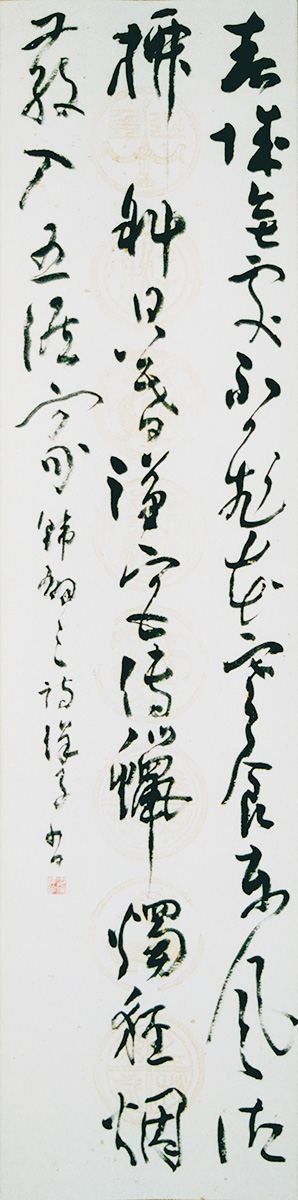 春城無處不飛花寒食東風御
柳斜日暮漢宮傳蠟燭輕烟
散入五侯家韓翃之詩 書